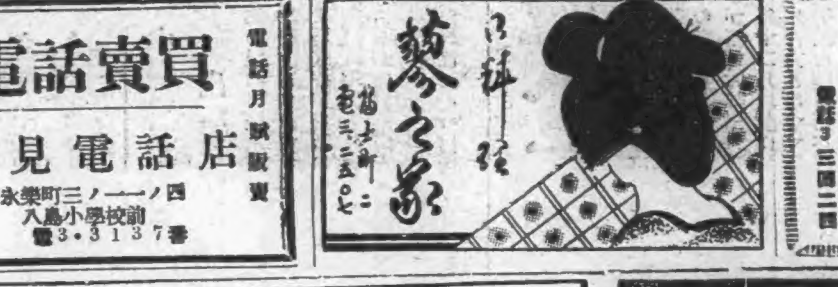 電話賣買
電話月賦販賣
見電話店
永樂町三ノ一一ノ四
八島小學校前
電3・3137番
御料理
蓼之家
電三、二五〇七
電話3